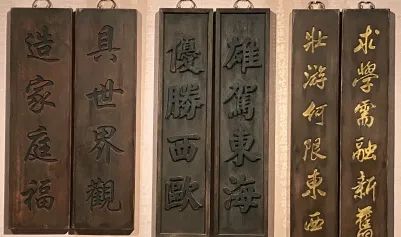 求學需融新舊
壯游何限東西
雄駕東海
優勝西歐
具世界觀
造家庭福